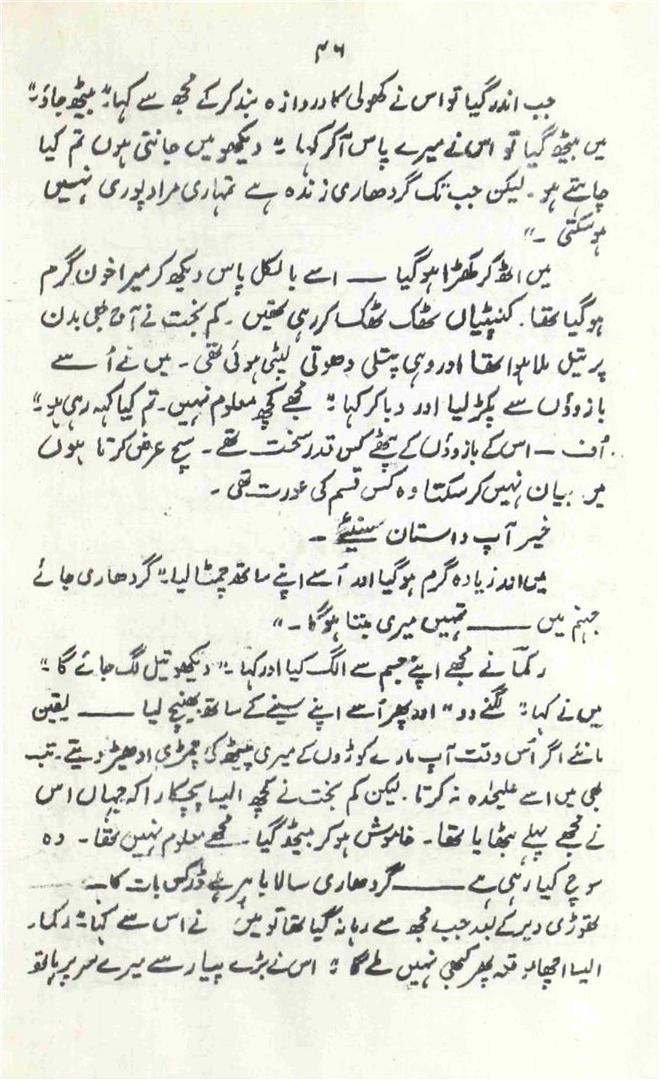 ۴۶
جب اندر گیا تو اس نے کھولی کا دروازہ بند کرکے مجھ سے کہا: "بیٹھ جاؤ:"
میں بیٹھ گیا تو اس نے میرے پاس آکر کہا "دیکھو میں جانتی ہوں تم کیا
چاہتے ہو۔ لیکن جب تک گردھاری زندہ ہے تمہاری مراد پوری نہیں
ہوسکتی۔"
میں اٹھ کر کھڑا ہوگیا —— اسے بالکل پاس دیکھ کر میرا خون گرم
ہوگیا تھا۔ کنپٹیاں ٹھک ٹھک کر رہی تھیں۔ کم بخت نے آج بھی بدن
پر تیل ملا ہوا تھا اور وہی پتلی دھوتی لپٹی ہوئی تھی۔ میں نے اُسے
بازوؤں سے پکڑ لیا اور دبا کر کہا: "مجھے کچھ معلوم نہیں۔ تم کیا کہہ رہی ہو:"
اُف — اس کے بازوؤں کے پٹھے کس قدر سخت تھے۔ سچ عرض کرتا ہوں
میں بیان نہیں کرسکتا وہ کس قسم کی عورت تھی۔
خیر آپ داستان سنیئے۔
میں اور زیادہ گرم ہوگیا اور اُسے اپنے ساتھ چمٹا لیا: "گردھاری جائے
جہنم میں —— تمہیں میری بننا ہوگا۔"
رکما نے مجھے اپنے جسم سے الگ کیا اور کہا۔ "دیکھو تیل لگ جائے گا:"
میں نے کہا: "لگنے دو" اور پھر اُسے اپنے سینے کے ساتھ بھینچ لیا —— یقین
مانئے اگر اُس وقت آپ مارے کوڑوں کے میری پیٹھ کی چمڑی ادھیڑ دیتے۔ تب
بھی میں اسے علیحدہ نہ کرتا۔ لیکن کم بخت نے کچھ ایسا پچکارا کہ جہاں اس
نے مجھے پہلے بٹھایا تھا۔ خاموش ہو کر بیٹھ گیا۔ مجھے معلوم نہیں تھا۔ وہ
سوچ کیا رہی ہے —— گردھاری سالا باہر ہے ڈر کس بات کا۔
تھوڑی دیر کے بعد جب مجھ سے رہا نہ گیا تھا تو میں نے اس سے کہا: "رکما۔
ایسا اچھا موقعہ پھر کبھی نہیں ملے گا:" اس نے بڑے پیار سے میرے سر پر ہاتھ